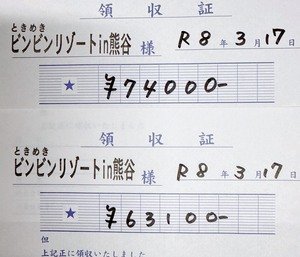 領収証
ときめき
ピンピンリゾートin熊谷 様 R8年3月17日
★ ¥74000-
領収証
ときめき
ピンピンリゾートin熊谷 様 R8年3月17日
★ ¥63100-
但
上記正に領収いたしました